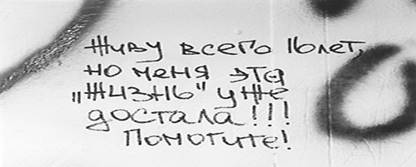 Живу всего 16 лет,
но меня эта
„жизнь" уже
достала!!!
Помогите!